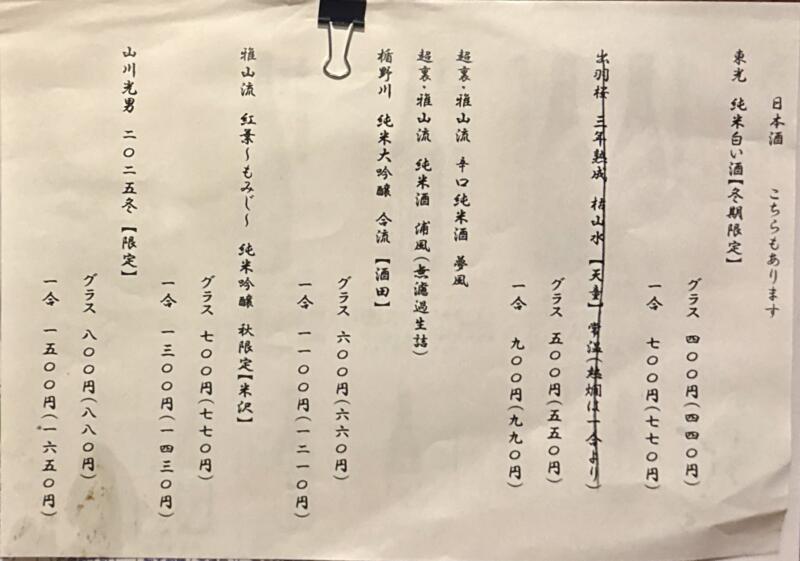 日本酒　こちらもあります
東光　純米白い酒【冬期限定】
グラス　四〇〇円(四四〇円)
一合　七〇〇円(七七〇円)
出羽桜　三年熟成　枯山水　【天童】常温(熱燗は一合より)
グラス　五〇〇円(五五〇円)
一合　九〇〇円(九九〇円)
超裏・雅山流　辛口純米酒　夢風
超裏・雅山流　純米酒　浦風(無濾過生詰)
楯野川　純米大吟醸　合流【酒田】
グラス　六〇〇円(六六〇円)
一合　一一〇〇円(一二一〇円)
雅山流　紅葉～もみじ～　純米吟醸　秋限定【米沢】
グラス　七〇〇円(七七〇円)
一合　一三〇〇円(一四三〇円)
山川光男　二〇二五冬【限定】
グラス　八〇〇円(八八〇円)
一合　一五〇〇円(一六五〇円)